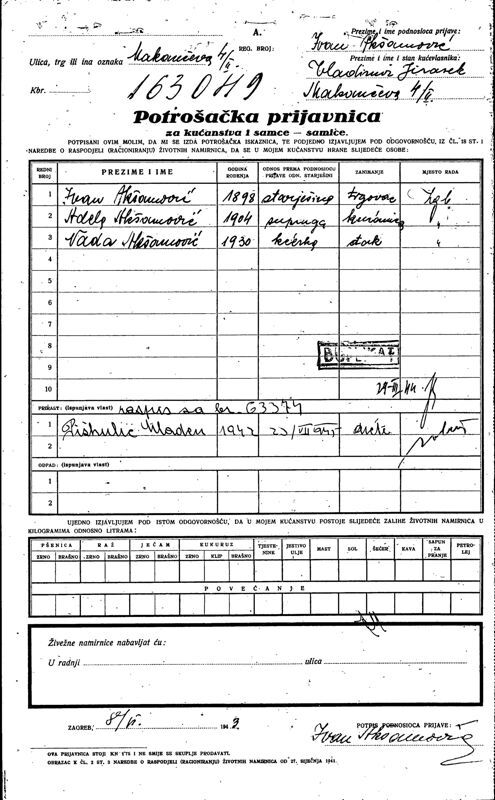 A.
REG. BROJ:
Prezime i ime podnosioca prijave:
Ivan Akšamović
Ulica, trg ili ina oznaka Makančeva 4/II
Prezime i ime i stan kućevlasnika:
Vladimir Jirasek
Kbr. 163049
Makančeva 4/II
Potrošačka prijavnica
za kućanstva i samce — samice.
POTPISANI OVIM MOLIM, DA MI SE IZDA POTROŠAČKA ISKAZNICA, TE PODJEDNO IZJAVLJUJEM POD ODGOVORNOŠĆU, IZ ČL. 18 ST. 1
NAREDBE O RASPODJELI (RACIONIRANJU) ŽIVOTNIH NAMIRNICA, DA SE U MOJEM KUĆANSTVU HRANE SLIJEDEĆE OSOBE:
REDNI BROJ PREZIME I IME GODINA ROĐENJA ODNOS PREMA PODNOSIOCU PRIJAVE ODN. STARJEŠINI ZANIMANJE MJESTO RADA
1 Ivan Akšamović 1898 starješina trgovac Zgb
2 Adela Akšamović 1904 supruga kućanica "
3 Nada Akšamović 1930 kćerka "
4
5
6
7
8
9
10
PRIRAST: (ispunjava vlast) br. 63374
1 Mladen 1942 23/VII 1945 dijete
2
OTPAD: (ispunjava vlast)
1
2
UJEDNO IZJAVLJUJEM POD ISTOM ODGOVORNOŠĆU, DA U MOJEM KUĆANSTVU POSTOJE SLIJEDEĆE ZALIHE ŽIVOTNIH NAMIRNICA U
KILOGRAMIMA ODNOSNO LITRAMA:
PŠENICA RAŽ JEČAM KUKURUZ TJESTENINE JESTIVO ULJE MAST SOL ŠEĆER KAVA SAPUN ZA PRANJE PETROLEJ
ZRNO BRAŠNO ZRNO BRAŠNO ZRNO BRAŠNO ZRNO KLIP BRAŠNO
POVEĆANJE
Živežne namirnice nabavljat ću:
U radnji ulica
ZAGREB, 8/VI. 194
POTPIS PODNOSIOCA PRIJAVE:
Ivan Akšamović
OVA PRIJAVNICA STOJI KN 1'75 I NE SMIJE SE SKUPLJE PRODAVATI.
OBRAZAC K ČL. 2 ST. 3 NAREDBE O RASPODJELI (RACIONIRANJU) ŽIVOTNIH NAMIRNICA OD 27. SIJEČNJA 1941.